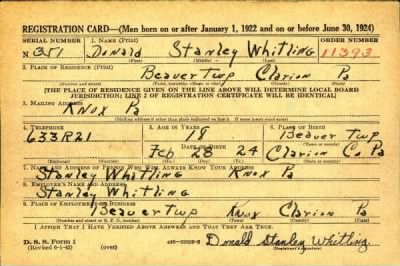 REGISTRATION CARD—(Men born on or after January 1, 1922 and on or before June 30, 1924)
SERIAL NUMBER 1. NAME (Print) ORDER NUMBER
N 351 Donald Stanley Whitling 11393
(First) (Middle) (Last)
2. PLACE OF RESIDENCE (Print)
Beaver Twp Clarion Pa
(Number and street) (Town, township, village, or city) (County) (State)
[THE PLACE OF RESIDENCE GIVEN ON THE LINE ABOVE WILL DETERMINE LOCAL BOARD
JURISDICTION; LINE 2 OF REGISTRATION CERTIFICATE WILL BE IDENTICAL]
3. MAILING ADDRESS
Knox Pa
[Mailing address if other than place indicated on line 2. If same insert word same]
4. TELEPHONE 5. AGE IN YEARS 6. PLACE OF BIRTH
633R21 18 Beaver Twp
DATE OF BIRTH
Feb 23 24 Clarion Co. Pa
(Exchange) (Number) (Mo.) (Day) (Yr.) (State or country)
7. NAME AND ADDRESS OF PERSON WHO WILL ALWAYS KNOW YOUR ADDRESS
Stanley Whitling Knox Pa
8. EMPLOYER'S NAME AND ADDRESS
Stanley Whitling
9. PLACE OF EMPLOYMENT OR BUSINESS
Beaver Twp Knox Clarion Pa
(Number and street or R. F. D. number) (Town) (County) (State)
I AFFIRM THAT I HAVE VERIFIED ABOVE ANSWERS AND THAT THEY ARE TRUE.
D. S. S. Form 1
(Revised 6-1-42) (over) Donald Stanley Whitling
(Registrant's signature)